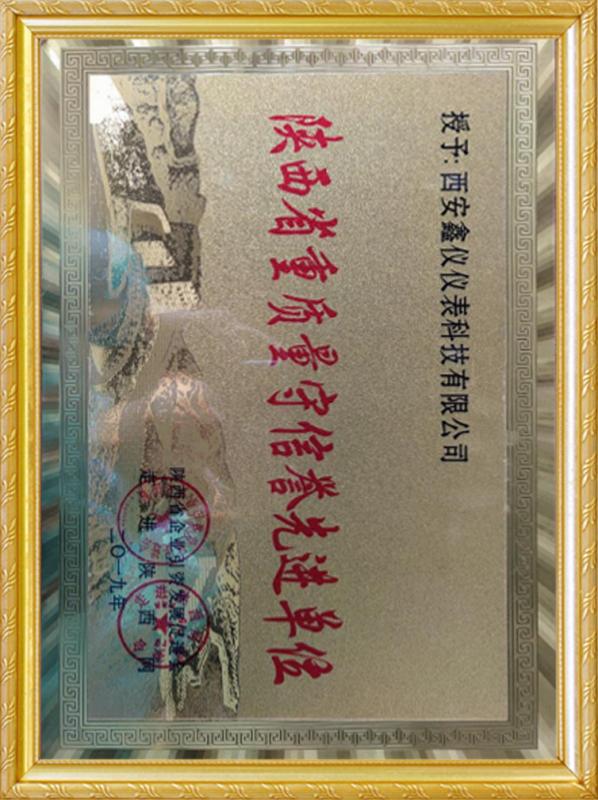 授予:西安鑫仪仪表科技有限公司
陕西省重质量守信誉先进单位
陕西省企业引资发展促进会
走进陕西网
二〇一九年